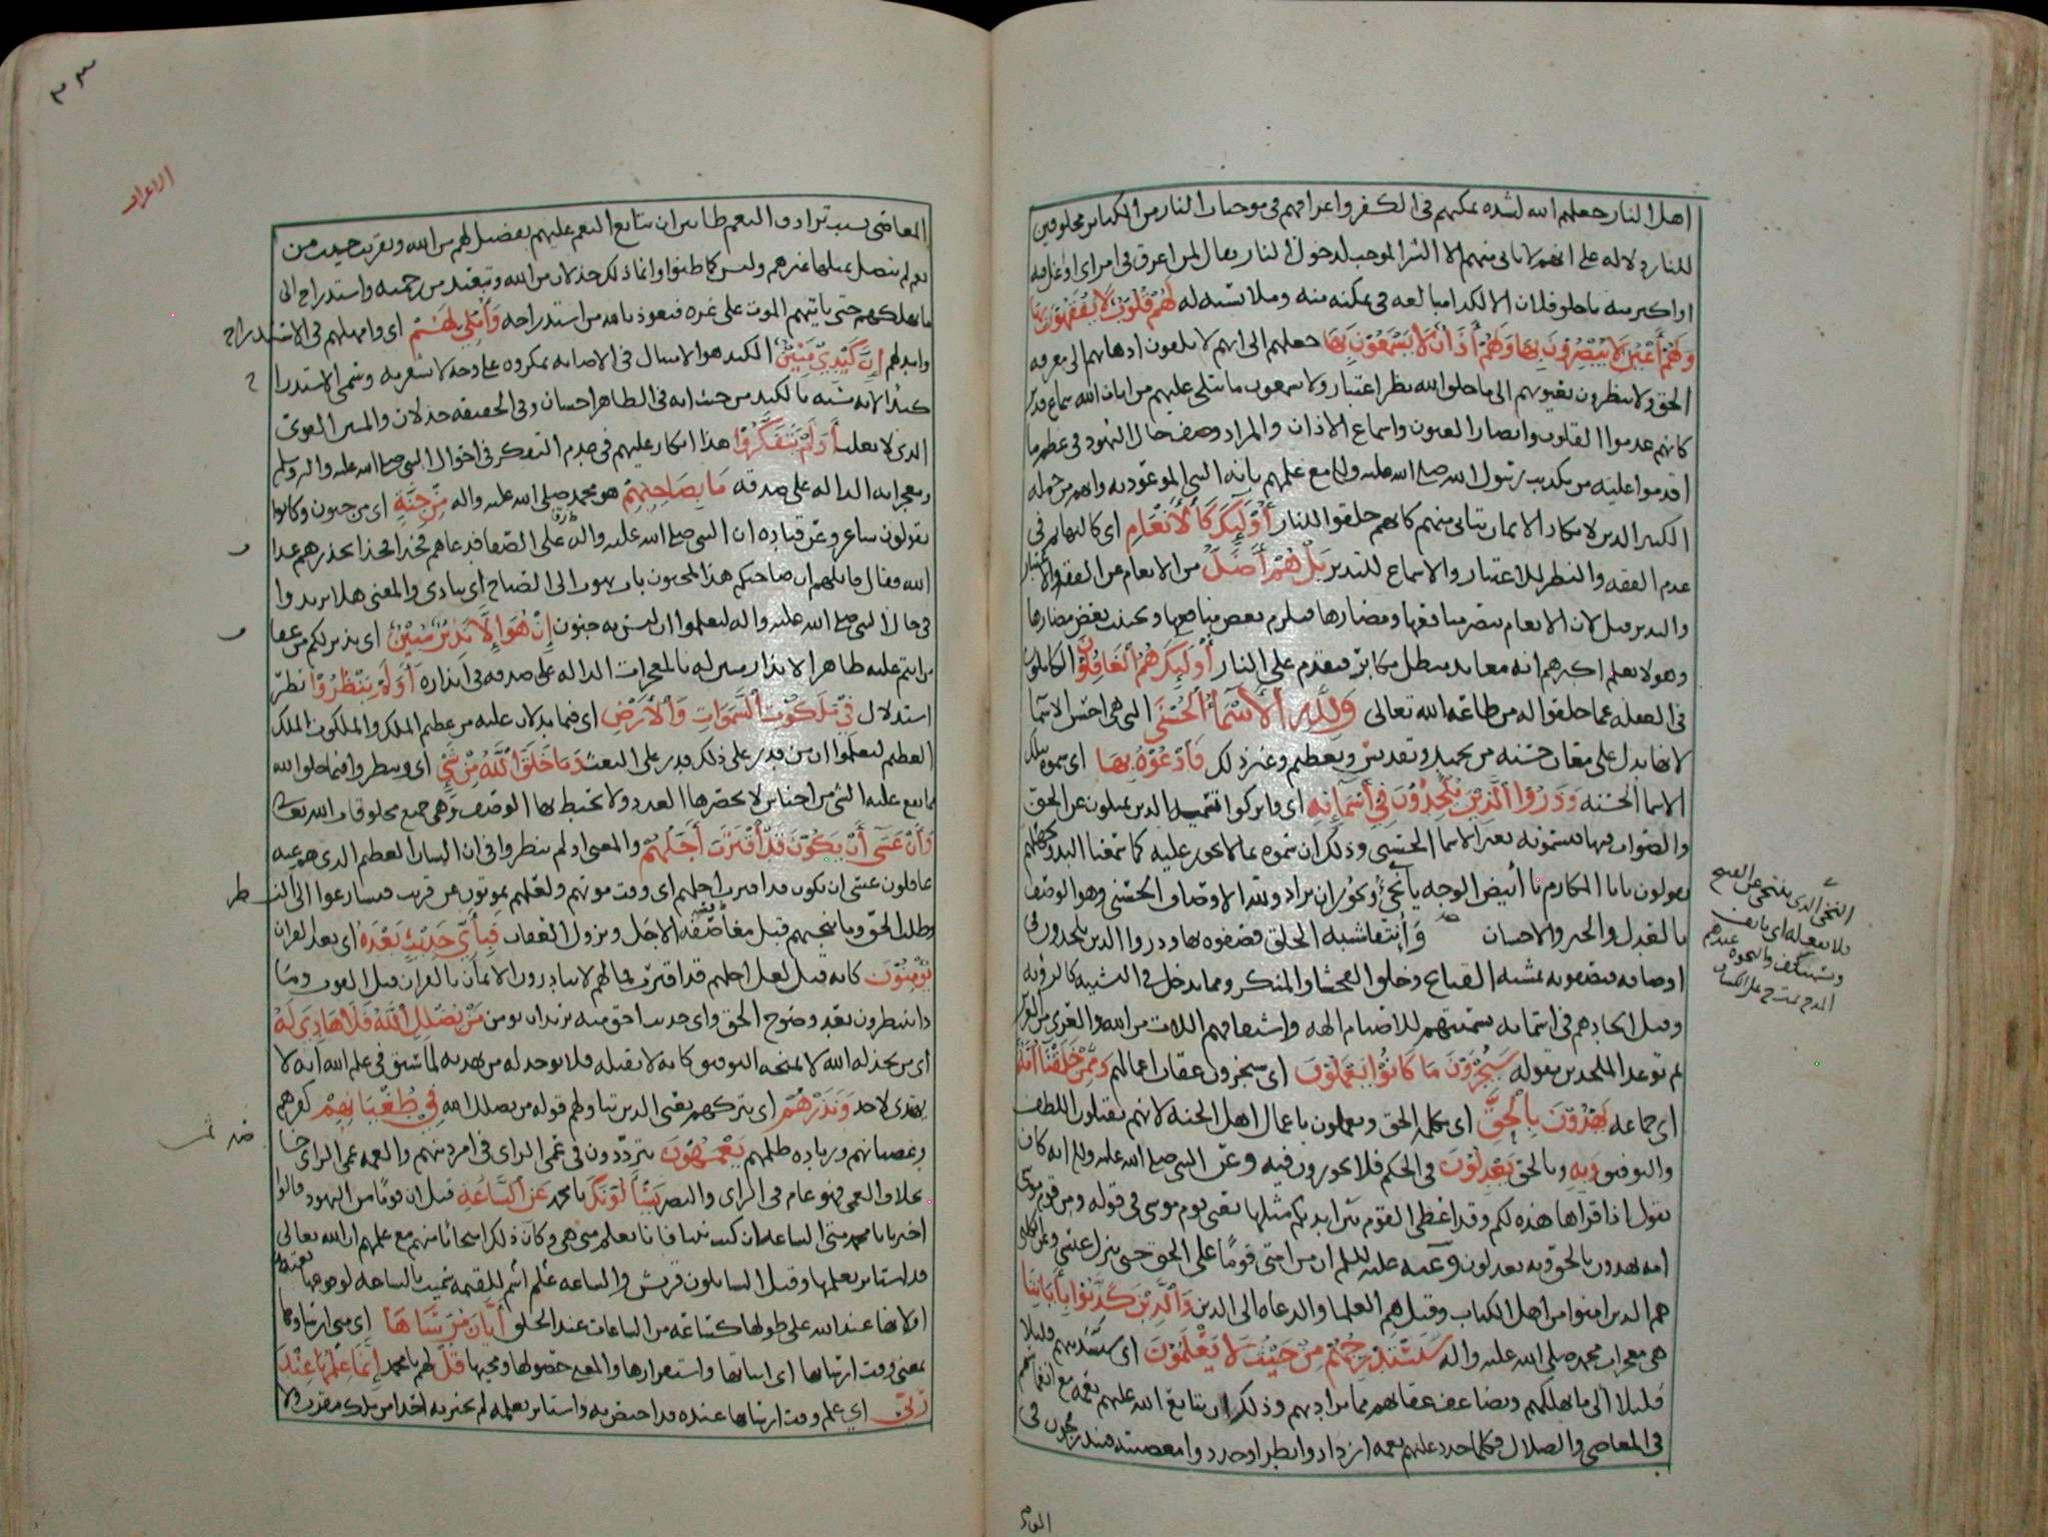 اهل النار جعلهم الله لشدة تمكنهم في الكفر واعراقهم في موجبات النار من الكبائر مخلوقين
للنار دلالة على انهم لا يأتي منهم الا الشر الموجب لدخول النار يقال لمن اعرق في امر اي اوغل فيه
او اكثر منه ما خلق فلان الا لكذا مبالغة في تمكنه منه وملابسته له لَهُمْ قُلُوبٌ لَا يَفْقَهُونَ بِهَا
وَلَهُمْ أَعْيُنٌ لَا يُبْصِرُونَ بِهَا وَلَهُمْ أَذَانٌ لَا يَسْمَعُونَ بِهَا جعلهم الى انهم لا يلقون اذهانهم الى معرفة
الحق ولا ينظرون بعيونهم الى ما خلق الله نظر اعتبار ولا يسمعون ما يتلى عليهم من ايات الله سماع تدبر
كانهم عدموا القلوب وابصار العيون واسماع الاذان والمراد وصف حال اليهود في عظم ما
اقدموا عليه من تكذيب رسول الله صلى الله عليه واله مع علمهم بانه النبي الموعود به وانهم من جملة
الكثير الذين لا يكاد الايمان يتأتى منهم كانهم خلقوا للنار أُولَئِكَ كَالْأَنْعَامِ اي كالبهائم في
عدم الفقه والنظر للاعتبار والاسماع للتدبر بَلْ هُمْ أَضَلُّ من الانعام عن الفقه والاعتبار
والتدبر قيل لان الانعام تبصر منافعها ومضارها فتلزم بعض منافعها وتجتنب بعض مضارها
وهولا يعلم اكثرهم انه معاند مبطل مكابر فيقدم على النار أُولَئِكَ هُمُ الْغَافِلُونَ الكاملون
في الغفلة عما خلقوا له من طاعة الله تعالى وَلِلَّهِ الْأَسْمَاءُ الْحُسْنَى التي هي احسن الاسما
لانها تدل على معان حسنة من تحميد وتقديس وتعظيم وغير ذلك فَادْعُوهُ بِهَا اي سموه بتلك
الاسما الحسنة وَذَرُوا الَّذِينَ يُلْحِدُونَ فِي أَسْمَائِهِ اي واتركوا تسمية الذين يميلون عن الحق
والصواب فيها فيسمونه بغير الاسما الحسنى وذلك ان يسموه بما لا يجوز عليه كما سمعنا البدو بجهلهم
يقولون يابا المكارم يا ابيض الوجه يا نخي ويجوز ان يراد ولله الاوصاف الحسنى وهو الوصف
بالعدل والخير والاحسان وانتفا شبه الخلق فصفوه بها وذروا الذين يلحدون في
اوصافه فيصفونه بمشية القبائح وخلق الفحشا والمنكر وما يدخل في التشبيه كالرؤية
وقيل الحادهم في اسمائه تسميتهم للاصنام الهة واشتقاقهم اللات من الله والعزى من العزيز
ثم توعد الملحدين بقوله سَيُجْزَوْنَ مَا كَانُوا يَعْمَلُونَ اي سيجزون عقاب اعمالهم وَمِمَّنْ خَلَقْنَا أُمَّةٌ
اي جماعة يَهْدُونَ بِالْحَقِّ اي بكلمة الحق ويعملون باعمال اهل الجنة لانهم يقبلون اللطف
والتوفيق وَبِهِ وبالحق يَعْدِلُونَ في الحكم فلا يجورون فيه وعن النبي صلى الله عليه واله انه كان
يقول اذا قراها هذه لكم وقد اعطي القوم بين ايديكم مثلها يعني قوم موسى في قوله ومن قوم موسى
امة يهدون بالحق وبه يعدلون وعنه عليه السلم ان من امتي قوما على الحق حتى ينزل عيسى وعن الكلبي
هم الذين امنوا من اهل الكتاب وقيل هم العلما والدعاة الى الدين وَالَّذِينَ كَذَّبُوا بِأَيَاتِنَا
هي معجزات محمد صلى الله عليه واله سَنَسْتَدْرِجُهُمْ مِنْ حَيْثُ لَا يَعْلَمُونَ اي سنستدنيهم قليلا
قليلا الى ما يهلكهم ويضاعف عقابهم مما يراد بهم وذلك ان يتابع الله عليهم نعمه مع انهماكهم
في المعاصي والضلال فكلما جدد عليهم نعمة ازدادوا بطرا وجددوا معصية فيتدرجون في
المعاصي
النخي الذي ينتخي عن القبيح
فلا يفعله اي يانف
ويستنكف والنخوة عندهم
٣٣
الاعراف
المعاصي بسبب ترادف النعم ظانين ان تتابع النعم عليهم تفضيل لهم من الله وتقريب حيث من
نعم لم تصل بمثلها غيرهم وليس كما ظنوا وانما ذلك خذلان من الله وتبعيد من رحمته واستدراج الى
ما يهلكهم حتى ياتيهم الموت على غرة فنعوذ بالله من استدراجه وَأُمْلِي لَهُمْ اي وامهلهم في الاستدراج
وامد لهم إِنَّ كَيْدِي مَتِينٌ الكيد هو الاحتيال في الاصابة بمكروه على وجه لا يشعر به وسمي الاستدراج
كيدا لانه شبه بالكيد من حيث انه في الظاهر احسان وفي الحقيقة خذلان والمتين القوي
الذي لا يغلب أَوَلَمْ يَتَفَكَّرُوا هذا انكار عليهم في عدم التفكر في احوال النبي صلى الله عليه واله وسلم
ومعجزاته الدالة على صدقه مَا بِصَاحِبِهِمْ هو محمد صلى الله عليه واله مِنْ جِنَّةٍ اي من جنون وكانوا
يقولون شاعر وعن قتادة ان النبي صلى الله عليه واله على الصفا فدعاهم فخذا فخذا يحذرهم عذاب
الله فقال قائلهم ان صاحبكم هذا لمجنون بات يهوت الى الصباح اي ينادي والمعنى هلا تدبروا
في حال النبي صلى الله عليه واله ليعلموا ان ليس به جنون إِنْ هُوَ إِلَّا نَذِيرٌ مُبِينٌ اي نذير لكم من عقاب
ما انتم عليه ظاهر الانذار مبين له بالمعجزات الدالة على صدقه في انذاره أَوَلَمْ يَنْظُرُوا نظر
استدلال فِي مَلَكُوتِ السَّمَوَاتِ وَالْأَرْضِ اي فيما يدلان عليه من عظم الملك والملكوت الملك
العظيم ليعلموا ان من قدر على ذلك قدر على البعث وَمَا خَلَقَ اللَّهُ مِنْ شَيْءٍ اي وينظروا فيما خلق الله
مما يقع عليه الشي من اجناس لا يحصرها العدد ولا يحيط بها الوصف وهي جميع مخلوقات الله تعالى
وَأَنْ عَسَى أَنْ يَكُونَ قَدِ اقْتَرَبَ أَجَلُهُمْ والمعنى اولم ينظروا في ان الشان العظيم الذي هم عنه
غافلون عسى ان يكون قد اقترب اجلهم اي وقت موتهم ولعلهم يموتون عن قريب فيسارعوا الى النظر
وطلب الحق وما ينجيهم قبل مغافصة الاجل ونزول العقاب فَبِأَيِّ حَدِيثٍ بَعْدَهُ اي بعد القران
يُؤْمِنُونَ كانه قيل لعل اجلهم قد اقترب فما لهم لا يبادرون الايمان بالقران قبل الفوت وما
ذا ينتظرون بعد وضوح الحق واي حديث احق منه يريدان يومن مَنْ يُضْلِلِ اللَّهُ فَلَا هَادِيَ لَهُ
اي من يخذله الله لا يمنحه التوفيق كانه لا يقبله فلا يوجد له من يهديه لما سبق في علم الله انه لا
يهتدي لاحد وَنَذَرُهُمْ اي يتركهم يعني الذين تناولهم قوله من يضلل الله فِي طُغْيَانِهِمْ كفرهم
وعصيانهم وزيادة ظلمهم يَعْمَهُونَ يترددون في عمى الراي في امر دينهم والعمه عمى الراي خاصة
بخلاف العمى فهو عام في الراي والبصر يَسْأَلُونَكَ يا محمد عَنِ السَّاعَةِ قيل ان قوما من اليهود قالوا
اخبرنا يا محمد متى الساعة ان كنت نبيا فانا نعلم متى هي وكان ذلك امتحانا منهم مع علمهم ان الله تعالى
قد استاثر بعلمها وقيل السائلون قريش والساعة علم اسم للقيمة سميت بالساعة لوقوعها بغتة
او لانها عند الله على طولها كساعة من الساعات عند الخلق أَيَّانَ مُرْسَاهَا اي متى ارساوها
بمعنى وقت ارسائها اي اثباتها واستقرارها والمعنى حصولها ومجيئها قُلْ لهم يا محمد إِنَّمَا عِلْمُهَا عِنْدَ
رَبِّي اي علم وقت ارسائها عنده قد اختص به واستاثر بعلمه لم يخبر به احدا من ملك مقرب ولا